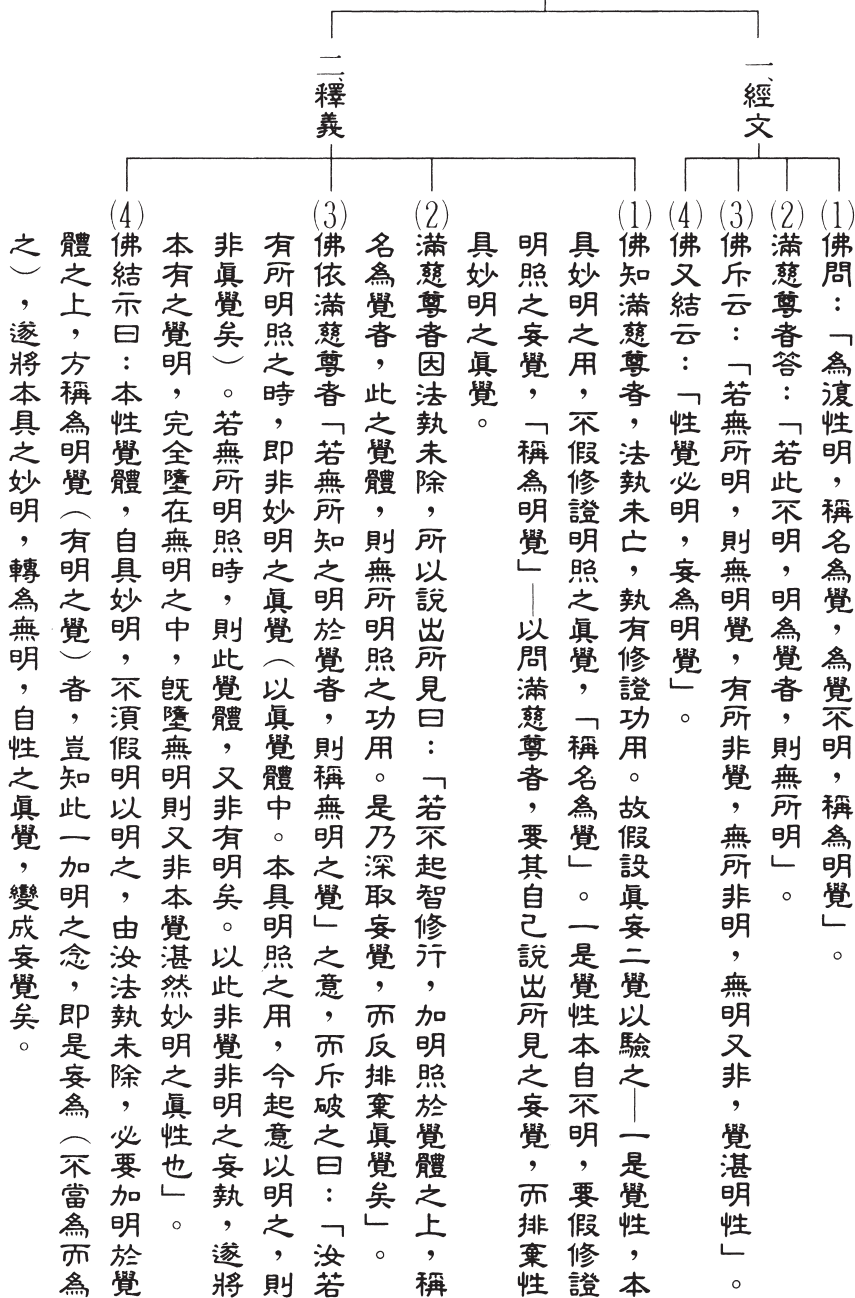 一、經文
(1)佛問：「為復性明，稱名為覺，為覺不明，稱為明覺」。
(2)滿慈尊者答：「若此不明，明為覺者，則無所明」。
(3)佛斥云：「若無所明，則無明覺，有所非覺，無所非明，無明又非，覺湛明性」。
(4)佛又結云：「性覺必明，妄為明覺」。
二、釋義
(1)佛知滿慈尊者，法執未亡，執有修證功用。故假設眞妄二覺以驗之—一是覺性，本
具妙明之用，不假修證明照之眞覺，「稱名為覺」。一是覺性本自不明，要假修證
明照之妄覺，「稱為明覺」—以問滿慈尊者，要其自己說出所見之妄覺，而排棄性
具妙明之眞覺。
(2)滿慈尊者因法執未除，所以說出所見曰：「若不起智修行，加明照於覺體之上，稱
名為覺者，此之覺體，則無所明照之功用。是乃深取妄覺，而反排棄眞覺矣」。
(3)佛依滿慈尊者「若無所知之明於覺者，則稱無明之覺」之意，而斥破之曰：「汝若
有所明照之時，即非妙明之眞覺（以眞覺體中。本具明照之用，今起意以明之，則
非眞覺矣）。若無所明照時，則此覺體，又非有明矣。以此非覺非明之妄執，遂將
本有之覺明，完全墮在無明之中，旣墮無明則又非本覺湛然妙明之眞性也」。
(4)佛結示曰：本性覺體，自具妙明，不須假明以明之，由汝法執未除，必要加明於覺
體之上，方稱為明覺（有明之覺）者，豈知此一加明之念，即是妄為（不當為而為
之），遂將本具之妙明，轉為無明，自性之眞覺，變成妄覺矣。